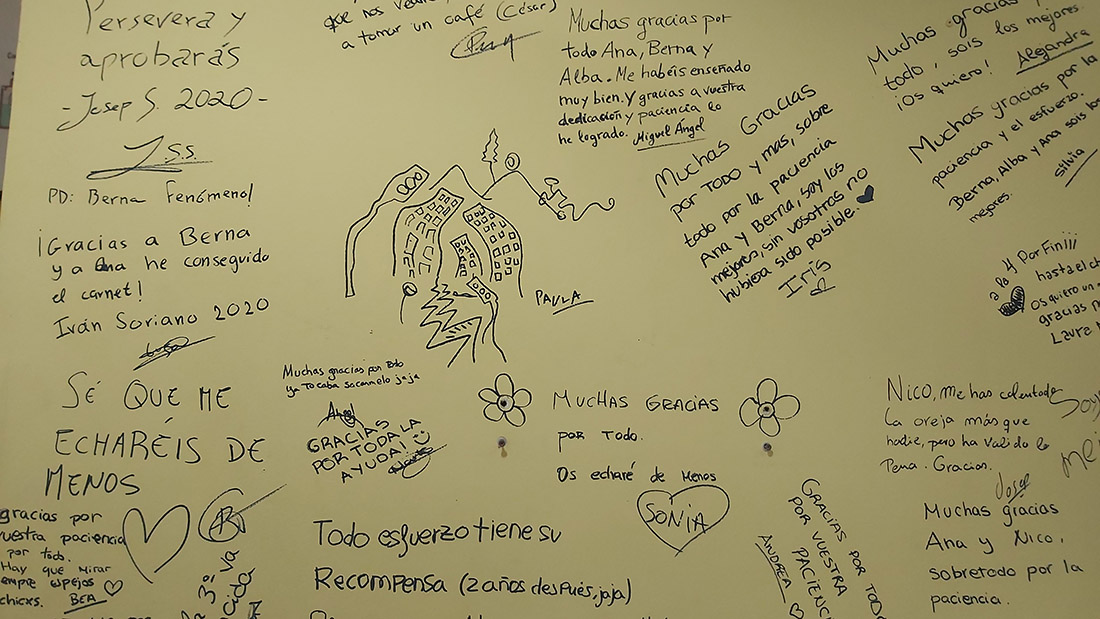 Persevera y
aprobarás
- Josep S. 2020 -
J.S.S.
PD: Berna Fenómeno!
¡Gracias a Berna
y a Ana he conseguido
el carnet!
Iván Soriano 2020
SÉ QUE ME
ECHARÉIS DE
MENOS
gracias por
vuestra paciencia
por todo.
Hay que mirar
espejos
chicxs. BEA
que nos
a tomar un café (César)
Muchas gracias por
todo Ana, Berna y
Alba. Me habéis enseñado
muy bien. Y gracias a vuestra
dedicación y paciencia lo
he logrado. Miguel Ángel
PAULA
Muchas gracias por todo
ya tocaba sacarmelo jaja
GRACIAS
POR TODA LA
AYUDA!
MUCHAS GRACIAS
por Todo.
Os echaré de menos
SONIA
Todo esfuerzo tiene su
Recompensa (2 años después, jaja)
Muchas Gracias
por TODO y mas, sobre
todo por la paciencia
Ana y Berna, soy los
mejores, sin vosotros no
hubiera sido posible.
Iris
Muchas gracias
todo, sois los mejores.
¡Os quiero! Alejandra
Muchas gracias por la
paciencia y el esfuerzo.
Berna, Alba y Ana sois los
mejores. Silvia
a la 4 Por Fin!!!
hasta el
Os quiero un
gracias
Laura
Nico, me has calentado
La oreja más que
nadie, pero ha valido la
Pena. Gracias.
Jose
Muchas gracias
Ana y Nico,
sobretodo por la
paciencia.
GRACIAS POR TODO
POR VUESTRA
PACIENC
ANDREA